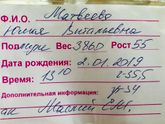 Ф.И.О. Матвеева
Юлия Витальевна
Пол Вес 3860 Рост 55
Дата рождения: 2.01.2019
Время: 13 10
Дополнительная информация: